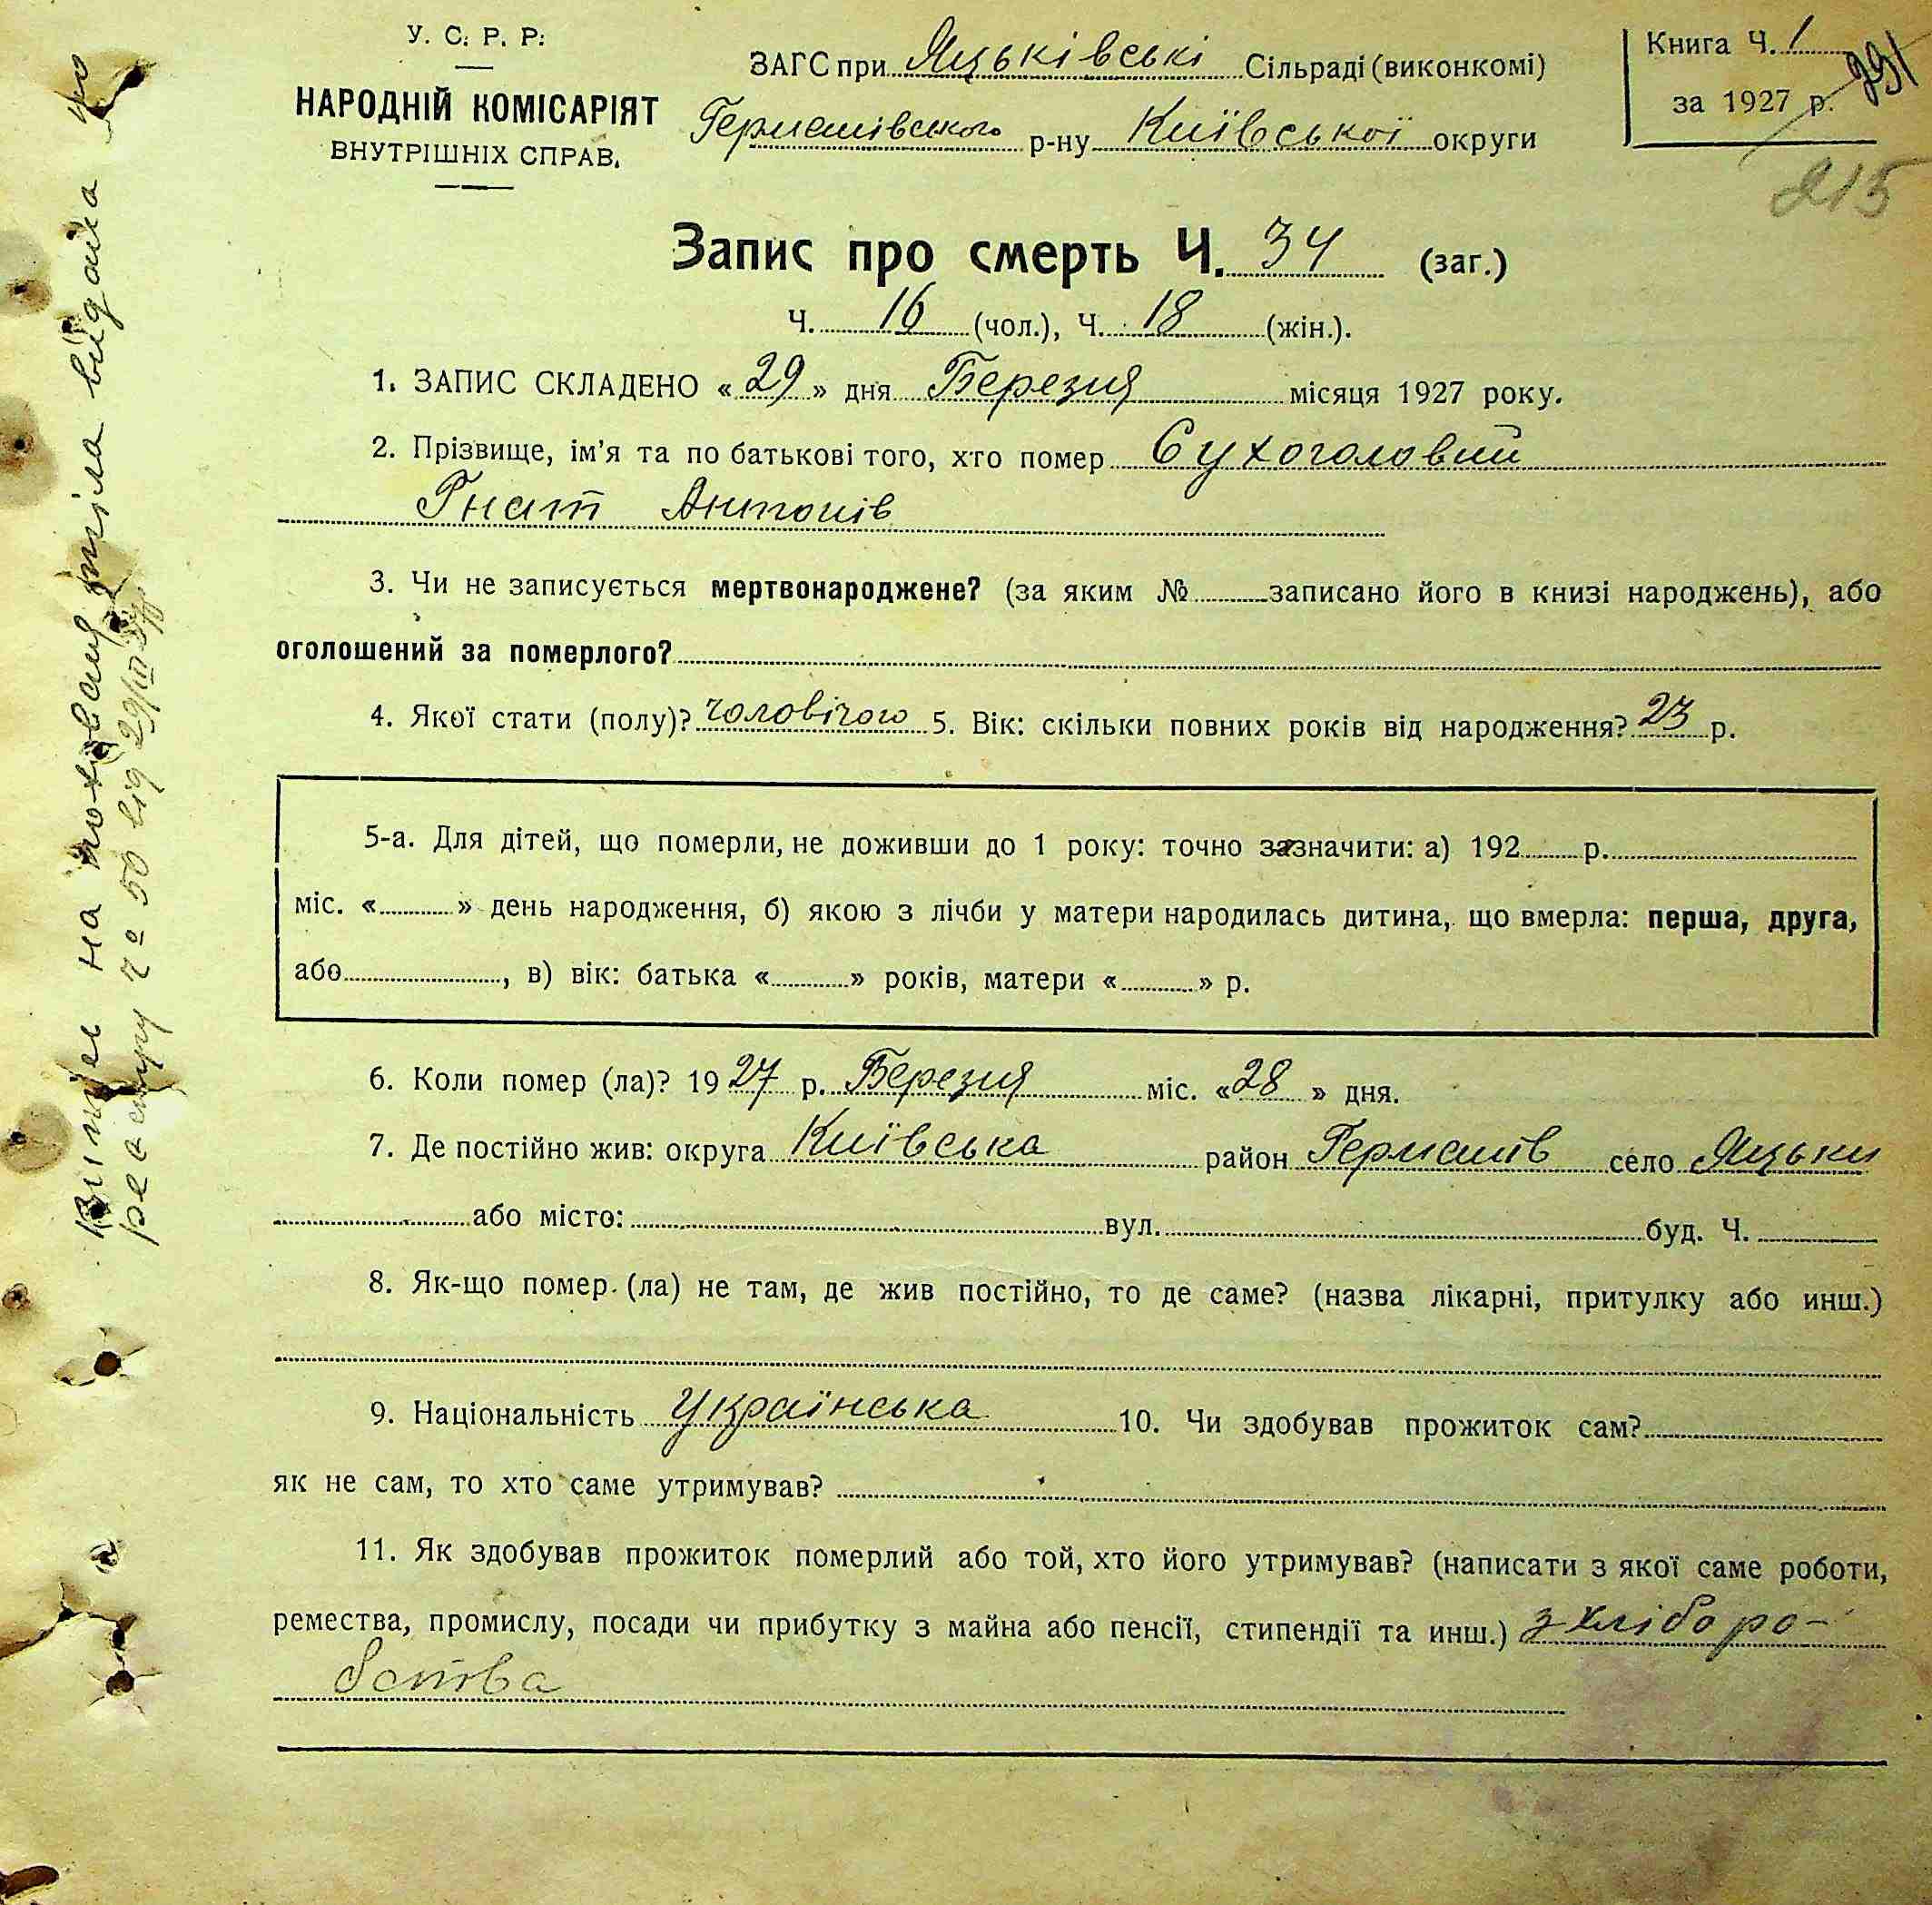 У. С. Р. Р.
НАРОДНІЙ КОМІСАРІЯТ
ВНУТРІШНІХ СПРАВ.
ЗАГС при Яцьківські Сільраді (виконкомі)
Germanівського р-ну Київської округи
Книга Ч. 1
за 1927 р.
291
215
Запис про смерть Ч. 34 (заг.)
Ч. 16 (чол.), Ч. 18 (жін.).
1. ЗАПИС СКЛАДЕНО «29» дня Березня місяця 1927 року.
2. Прізвище, ім'я та по батькові того, хто помер Сухоголовий
Гнат Антонів
3. Чи не записується мертвонароджене? (за яким № записано його в книзі народжень), або
оголошений за померлого?
4. Якої стати (полу)? чоловічого 5. Вік: скільки повних років від народження? 23 р.
5-а. Для дітей, що померли, не доживши до 1 року: точно зазначити: а) 192 р.
міс. « » день народження, б) якою з лічби у матери народилась дитина, що вмерла: перша, друга,
або , в) вік: батька « » років, матери « » р.
6. Коли помер (ла)? 1927 р. Березня міс. «28» дня.
7. Де постійно жив: округа Київська район Германів село Яцьки
або місто: вул. буд. Ч.
8. Як-що помер (ла) не там, де жив постійно, то де саме? (назва лікарні, притулку або инш.)
9. Національність Українська 10. Чи здобував прожиток сам?
як не сам, то хто саме утримував?
11. Як здобував прожиток померлий або той, хто його утримував? (написати з якої саме роботи,
ремества, промислу, посади чи прибутку з майна або пенсії, стипендії та инш.) з хліборо-
бства
на поховання тіла видана по
реєстру № 50 від 29/III 27 р.